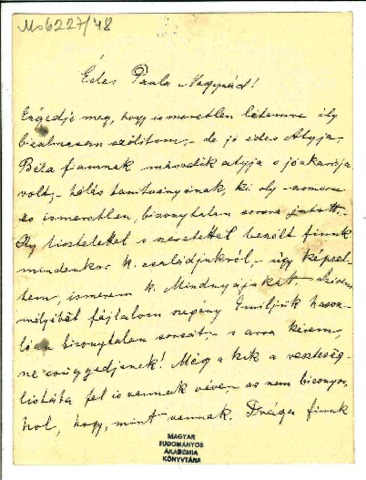 Ms 6227/48
Édes Paula Nagysád!
Engedje meg, hogy ismeretlen létemre ily
bizalmasan szólítom, - de jó édes Atyja,
Béla fiamnak második atyja s jóakarója
volt, - hálás tanítványának, ki oly
és ismeretlen, bizonytalan sorsra jutott. -
Oly tisztelettel s szeretettel beszélt fiunk
mindenkor k. családjukról, - úgy képzel-
tem, ismerem k. Mindnyájukat. Szívem
mélyéből fájlalom szegény Emiljük hason-
lóan bizonytalan sorsát, s arra kérem,
ne csüggedjenek! Még a kik a veszteség-
listába fel is vannak véve, az nem bizonyos,
hol, hogy, mint vannak. Drága fiunk
MAGYAR
TUDOMÁNYOS
AKADÉMIA
KÖNYVTÁRA